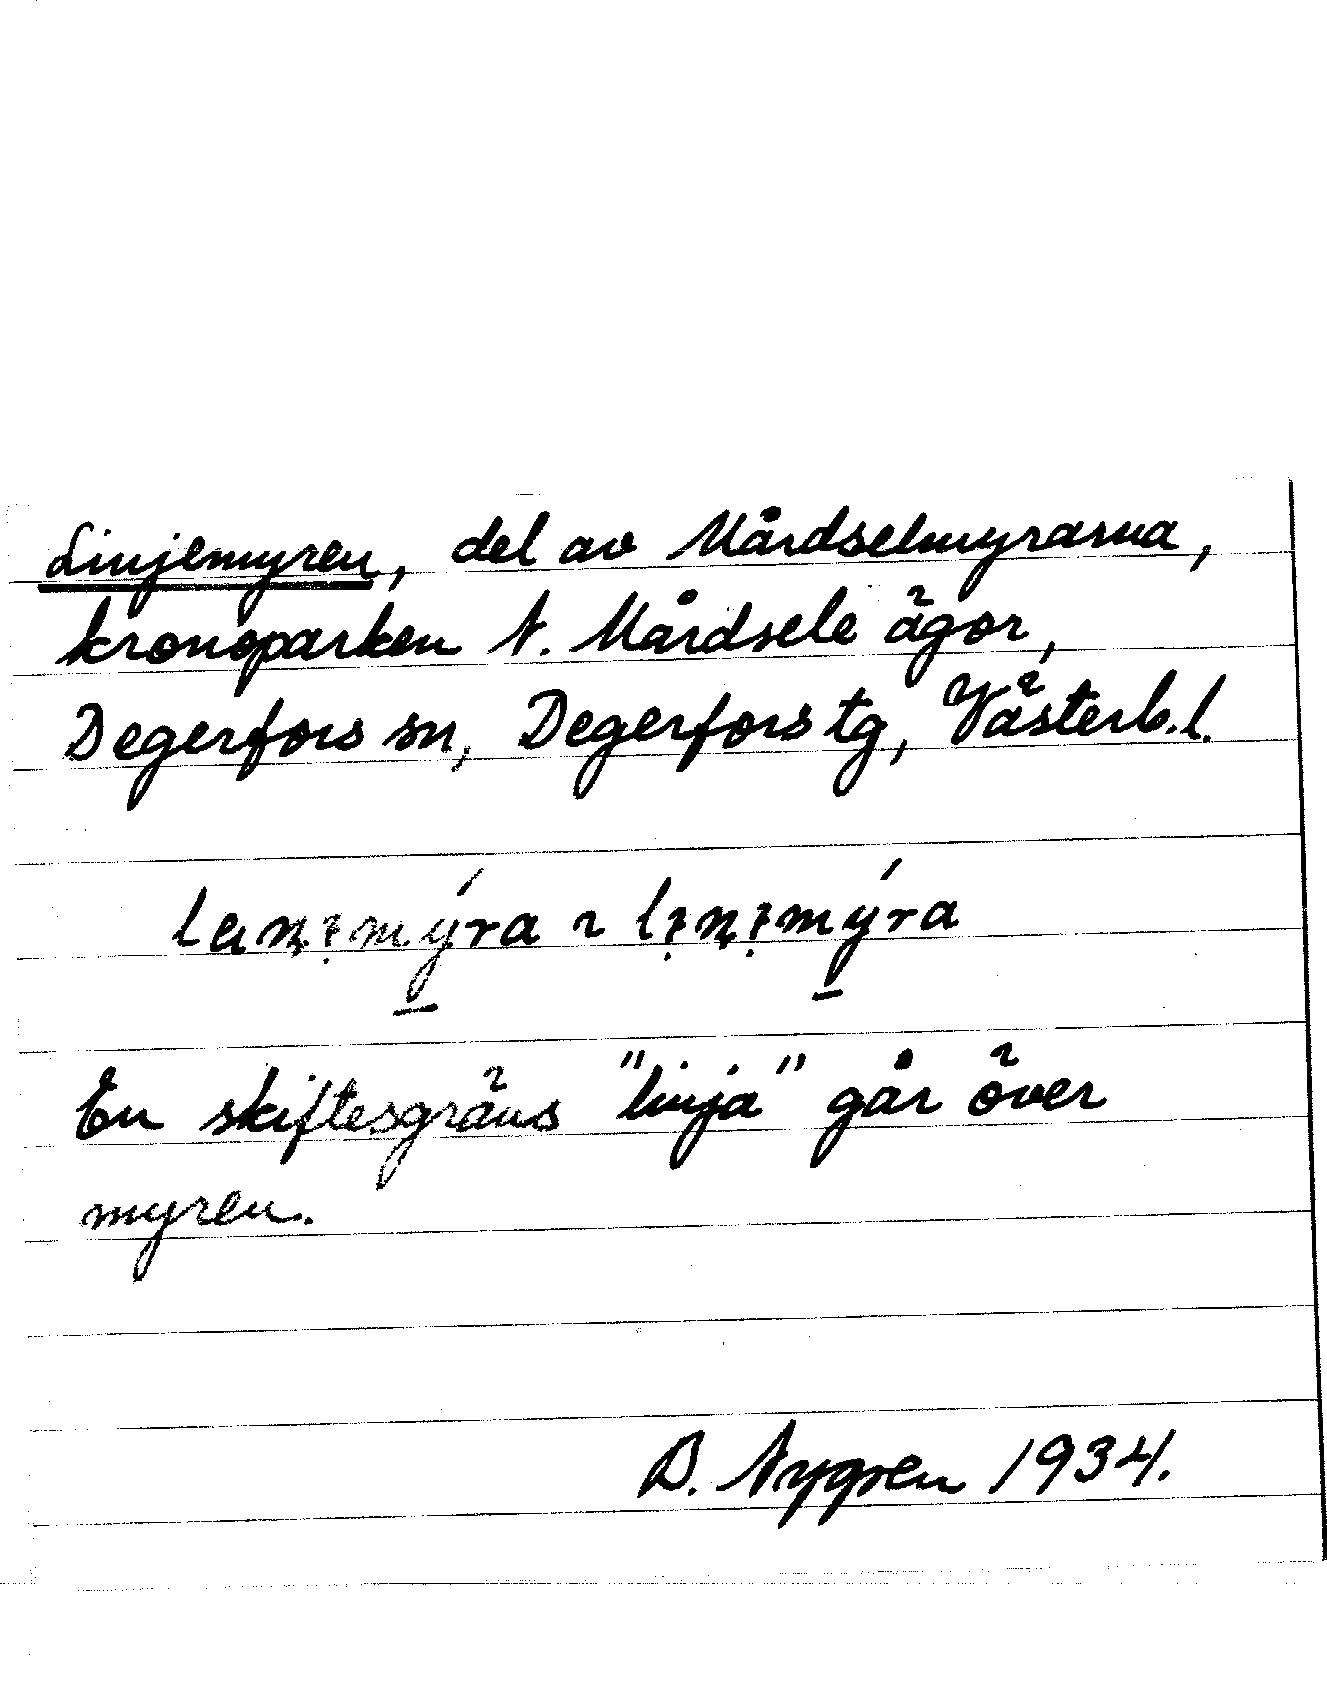 Linjemyren, del av Mårdselmyrarna,
kronoparken N. Mårdsele ägor,
Degerfors sn, Degerfors tg, Västerb.l.
En skiftesgräns "linja" går över
myren.
B. Nygren 1934.